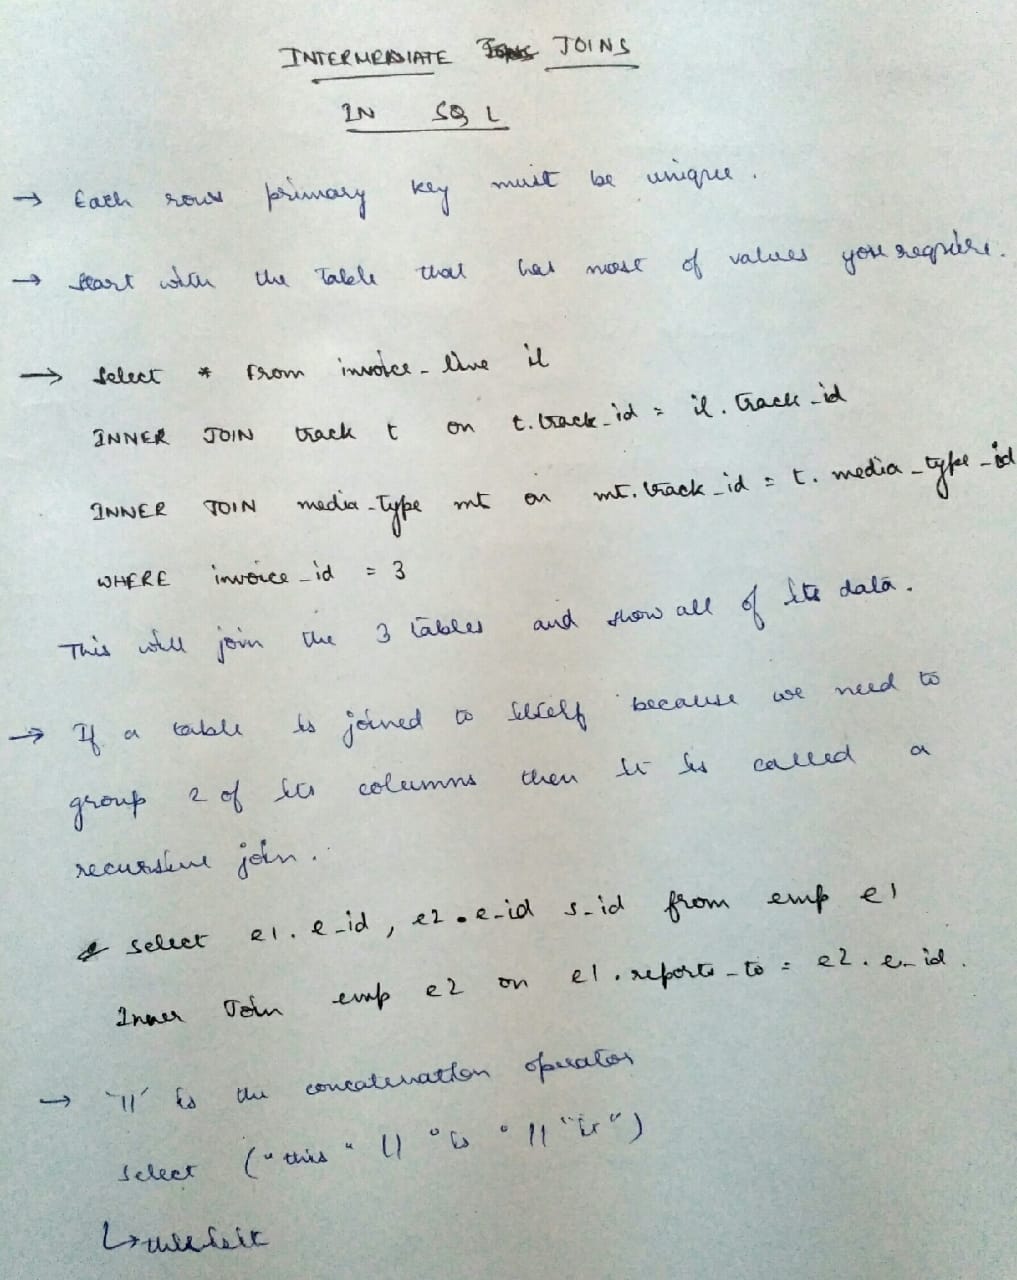 INTERMEDIATE JOINS
IN SQL
→ Each rows primary key must be unique.
→ Start with the Table that has most of values you require.
→ Select * From invoice_line il
INNER JOIN track t on t.track_id = il.track_id
INNER JOIN media_type mt on mt.track_id = t.media_type_id
WHERE invoice_id = 3
This will join the 3 tables and show all of its data.
→ If a table is joined to itself because we need to
group 2 of its columns then it is called a
recursive join.
select e1.e_id, e2.e_id s_id from emp e1
Inner Join emp e2 on e1.reports_to = e2.e_id.
→ '||' is the concatenation operator
Select ("this" || "is" || "it")